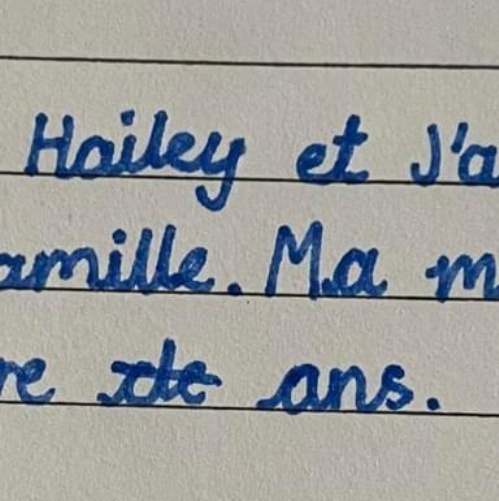 Hailey et J'a
amille. Ma m
re ans.